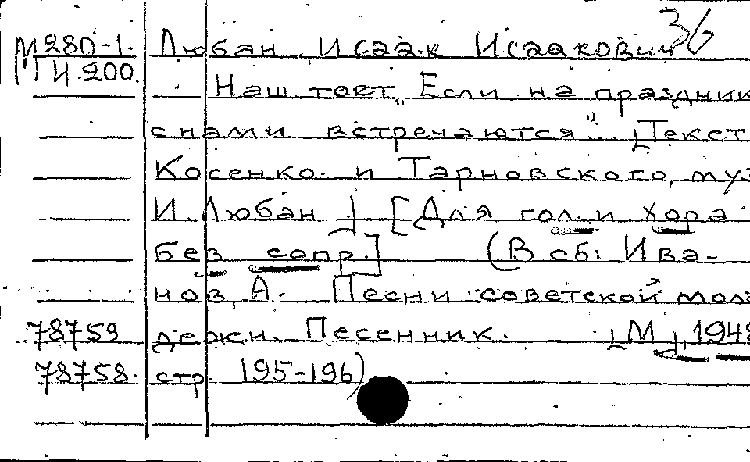 36
М280-1. Любан Исаак Исаакович
Ⅱ И.200.
Наш тост „Если на праздник
с нами встречаются" [Текст
Косенко и Тарновского, муз
И. Любан] [Для гол. и хора
без сопр.] (В сб: Ива-
нов, А. Песни советской мол
78759 дежи. Песенник. [М], 1948
78758. стр. 195-196)